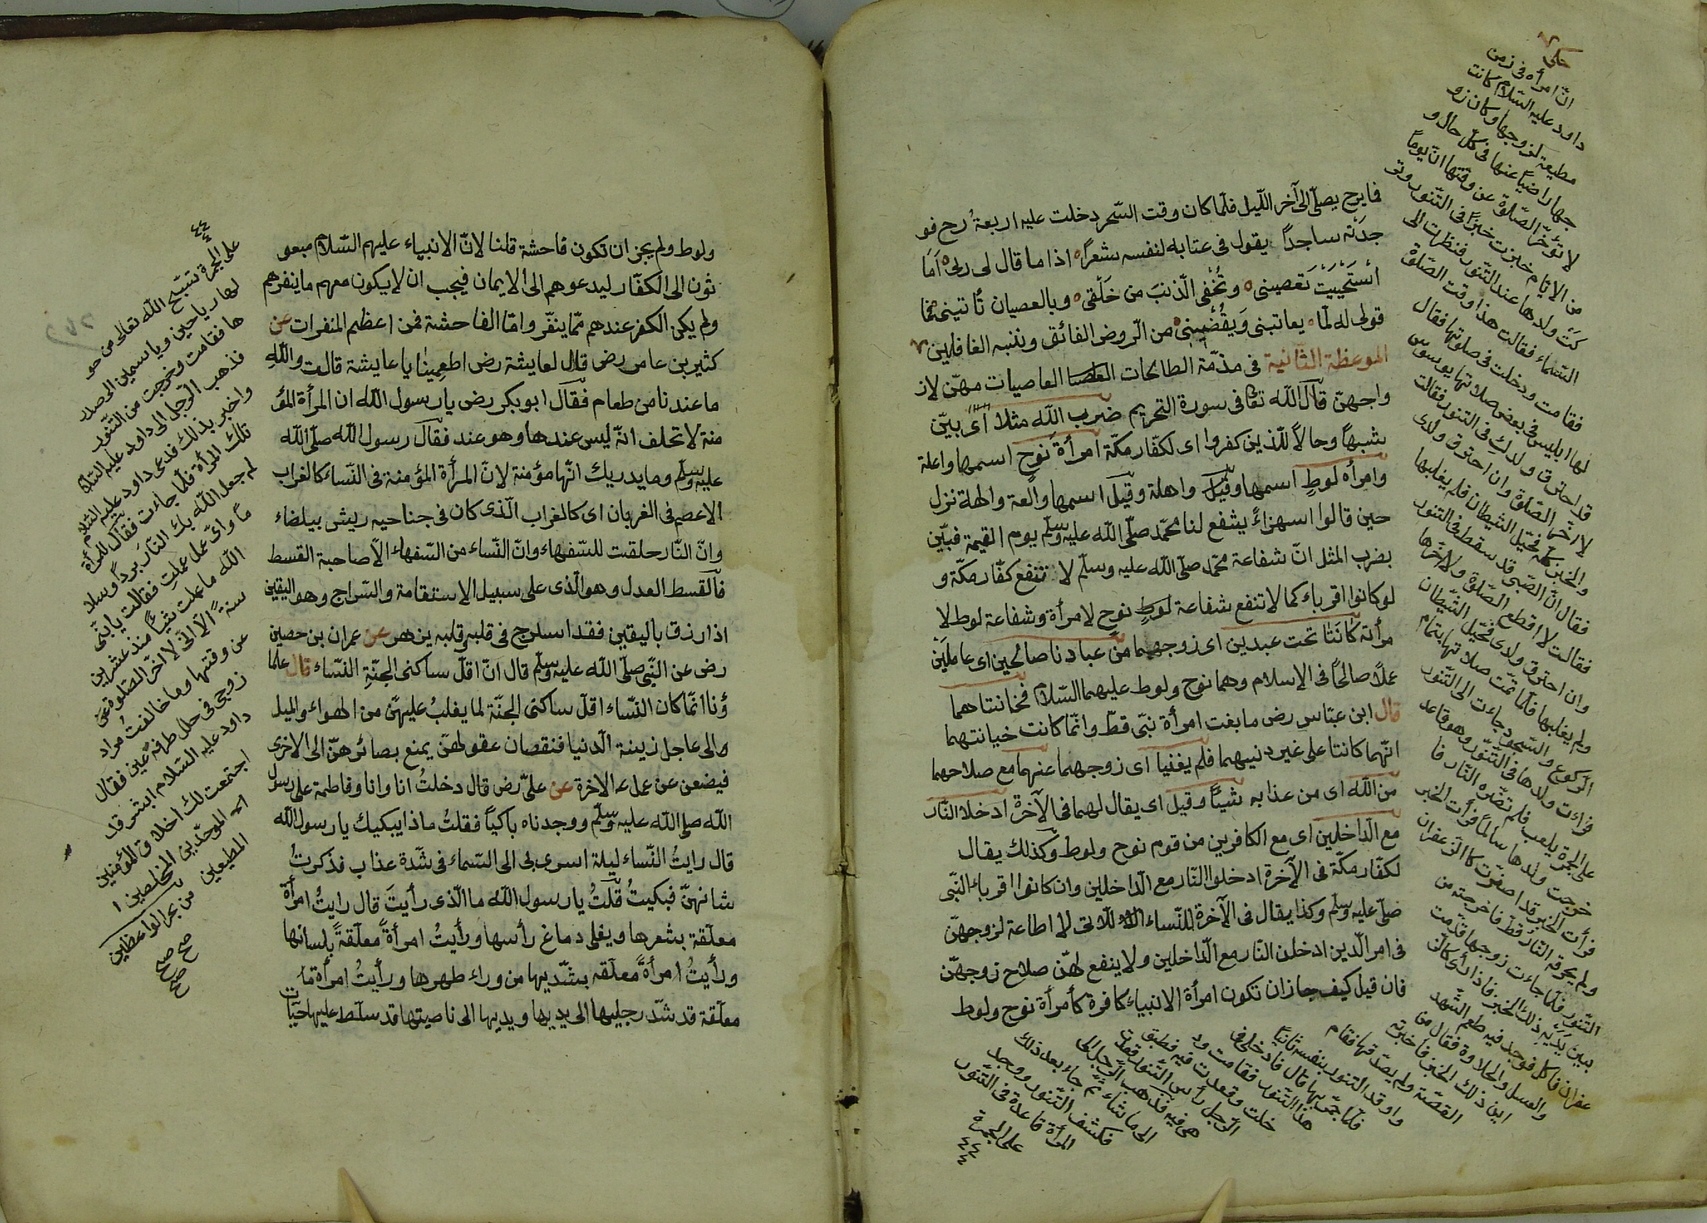 فما برح يصلّى الى آخر اللّيل فلمّا كان وقت السّحر دخلت عليه اربعةُ رح فو
جدتْه ساجداً يقول فى عتابه لنفسه شعراً اذا ما قال لى ربى اَمَا
اسْتَحْيَيْتَ تَعصينى وتُخْفى الذّنبَ من خَلْقى وبالعصيان تأتينى فما
قولى له لمّا يعاتبنى ويُقْصينى من الرّوض الفائق وتنبيه الغافلين
الموعظة الثّانية فى مذمّة الطالحات العاصيات مهنّ لاز
واجهنّ قال الله تعالى فى سورة التحريم ضرب الله مثلا اى بيّن
شبهاً وحالاً للّذين كفروا اى لكفّار مكّة امرأة نوحٍ اسمها واعلة
وامرأه لوطٍ اسمها وقيل واهلة وقيل اسمها والعة والهة نزل
حين قالوا استهزاءً يشفع لنا محمّد صلّى الله عليه وسلّم يوم القيمة فبيّن
بضرب المثل انّ شفاعة محمّد صلّى الله عليه وسلّم لا تنفع كفّار مكّة و
لو كانوا اقرباء كما لا تنفع شفاعة نوح لامرأة وشفاعة لوط لا
مرأته كانتا تحت عبدين اى زوجهما من عبادنا صالحين اى عاملَيْن
عملاً صالحاً فى الاسلام وهما نوح ولوط عليهما السّلام فخانتاهما
قال ابن عبّاس رض ما بغت امرأة نبّى قطّ وانّما كانت خيانتهما
انّهما كانتا على غير دنيهما فلم يغنيا اى زوجهما عنهما مع صلاحهما
من الله اى من عذابه شيئاً وقيل اى يقال لهما فى الآخرة ادخلا النّار
مع الدّاخلين اى مع الكافرين من قوم نوح ولوط وكذلك يقال
لكفّار مكّة فى الآخرة ادخلوا النّار مع الدّاخلين وان كانوا اقرباء النّبى
صلّى عليه وسلم وكذا يقال فى الآخرة للنّساء اللاتى لا اطاعة لزوجهنّ
فى امر الدّين ادخلن النّار مع الدّاخلين ولا ينفع لهنّ صلاح زوجهنّ
فان قيل كيف جاز ان تكون امرأة الانبياء كافرة كأمرأة نوح ولوط
حكى
انّ امرأه فى زمن
داود عليه السّلام كانت
مطيعة لزوجها وكان زو
جها راضياً عنها فى كلّ حال و
لا تؤخّر الصّلوة عن وقتها انّ يوماً
من الايّام خبزت خبزاً فى التّنور وتر
كت ولدها عند التّنور فنظرت الى
السّماء فقالت هذا وقت الصّلوة
فقامت ودخلت فى صلوتها فقال
لها ابليس فى بعض صلاتها يوسوس
قد احترق ولدك فى التنور فقالت
لا اؤخّر الصّلوة وان احترق ولدى
والخبز فتحيّل الشّيطان فلم يغلبها
فقال انّ الصّبى قد سقط فى التنور
فقالت لا اقطع الصّلوة ولا أخّرها
وان احترق ولدى فتحيّل الشّيطان
ولم يغلبها فلمّا تمّت صلاتها بتمام
الرّكوع والسّجود جاءت الى التّنور
فراءت ولدها فى التّنور وهو قاعد
على الجمرة يلعب فلم تضرّه النّار فا
خرجت ولدها سالماً فرأت الخبز
فرأت الخبز قد اصفرّت كالزّعفران
ولم يحرقه النّار قطّ فاخرجته من
التّنور فلمّا جاءت زوجها قدّمت
بين يدَيْه ذلك الخبز فاذا رأى كالزّ
عفران فاكل فوجد فيه طعم الشّهد
والعسل والحلاوة فقال من
اين ذلك الخبز فاخبرته
القصّة ولم يصدّقها فقام
واوقد التنور بنفسه ثانيًا
فلمّا حمى بها قال فادخلى فى
هذا التّنور فقامت ود
خلت وقعدت فيه فطبق
الرّجل رأس التّنور وقعدت
هى فيه فذهب الرّجل الى
الى ما شاء ثمّ جاء بعد ذلك
فكشف التّنور ووجد
المرأة قاعدة فى التّنور
على الجمرة
ولوط ولم يجز ان تكون فاحشة قلنا لانّ الانبياء عليهم السّلام مبعو
ثون الى الكفّار ليدعوهم الى الايمان فيجب ان لا يكون معهم ما ينفرهم
ولم يكن الكفر عندهم ممّا ينفّر وامّا الفاحشة فمن اعظم المنفرات عن
كثير بن عامر رض قال لعايشة رض اطعمينا يا عايشة قالت والله
ما عندنا من طعام فقال ابو بكر رض يا رسول الله ان المرأة المؤ
منة لا تحلف انّه ليس عندها وهو عند فقال رسول الله صلّى الله
عليه وسلّم وما يدريك انّها مؤمنة لانّ المرأة المؤمنة فى النّساء كالغراب
الاعصم فى الغربان اى كالغراب الّذى كان فى جناحيه ريش بيضاء
وانّ النّار خلقت للسّفهاء وانّ النّساء من السّفهاء الّا صاحبة القسط
فالقسط العدل وهو الّذى على سبيل الاستقامة والسّراج وهو اليقين
اذا رزق باليقين فقد اسلرج فى قلبه قلبه يزهر عن عمران بن حصين
رض عن النّبى صلّى الله عليه وسلّم قال انّ اقلّ ساكنى الجنّة النّساء قال علما
ؤنا انّما كان النّساء اقلّ ساكنى الجنّة لما يغلبُ عليهنّ من الهواء والميل
مالى عاجل زينة الدّنيا فنقصان عقولهنّ يمنع بصائرهنّ الى الاخرى
فيضعن عن عمل الاخرة عن علىّ رض قال دخلتُ انا وانا وفاطمة على رسل
الله صلى الله عليه وسلّم ووجدناه باكياً فقلتُ ماذا يبكيك يا رسول الله
قال رايتُ النّساء ليلة اسرى بى الى السّماء فى شدّة عذاب فذكرتُ
شانهنّ فبكيتُ قلتُ يا رسول الله ما الذى رأيتَ قال رايتُ امرأة
معلّقة بشعرها ويغلى دماغ رأسها ورأيتُ امرأةً معلّقةً بلسانها
ورأيتُ امرأةً معلّقه بشّديها من وراء ظهرها ورأيتُ امرأة
معلّقة قد شدّ رجليها الى يديها ويديها الى ناصيتها قد سلّط عليها حيّات
على الجمرة تسبّح الله تعالى من حو
لها رياحين وياسمين الى صدر
ها فقامت وخرجت من التّنور
فذهب الرّجل الى داود عليه السّلام
واخبر بذلك فدعى داود عليه السّلم
تلك المرأة فلمّا جاءت فقال للمرأة
لم جعل الله بك النّار برداً وسلا
ماً واىّ عمل عملت فقالت يا نبىّ
الله ما عملت شيأً منذ عشرين
سنةً الّا انّى لا أخّر الصّلوة عن
عن وقتها وما خالفتُ مراد
زوجى فى حلل طرفة عين فقال
داود عليه السّلام ابشر قد
اجتمعت لك اخلاق المؤمنين
الموحّدين المخلصين ا
المطيعين من بحر الواعظين
صح صح
صح